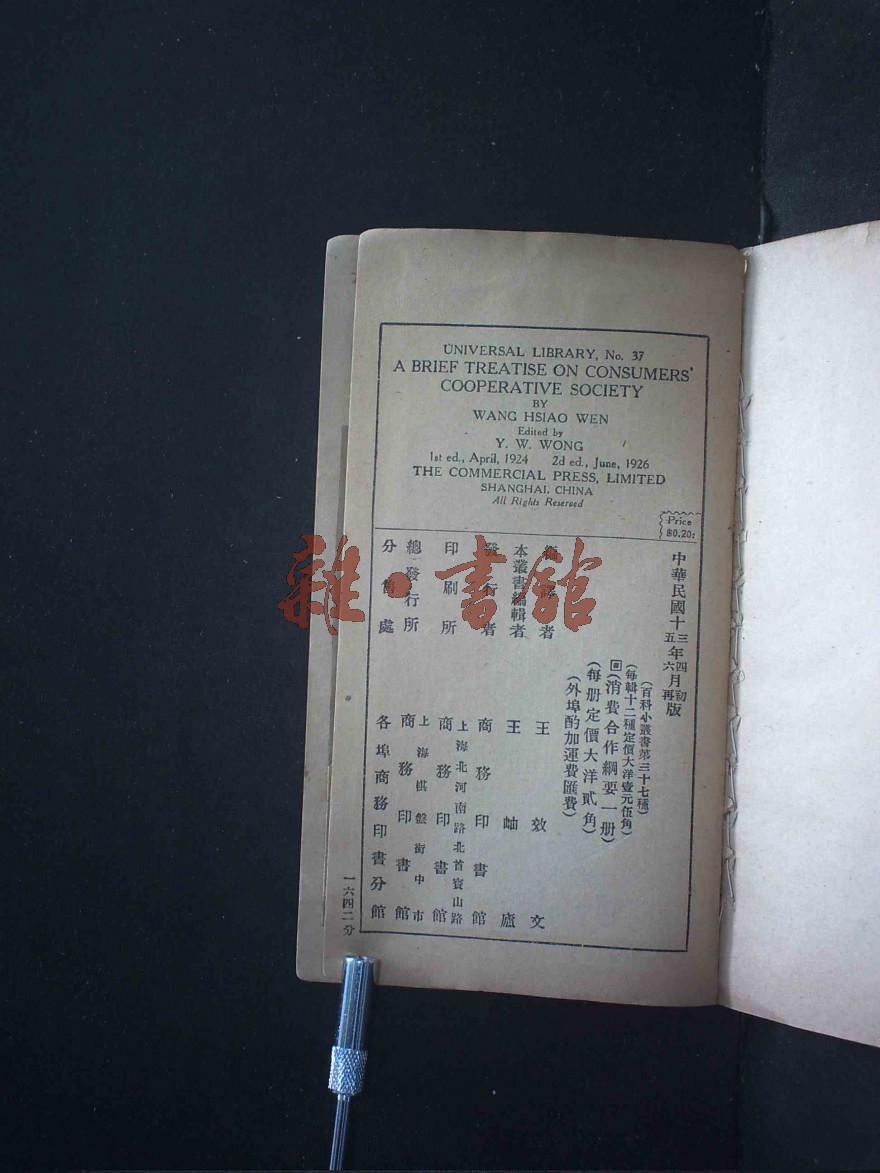 UNIVERSAL LIBRARY, No. 37
A BRIEF TREATISE ON CONSUMERS'
COOPERATIVE SOCIETY
BY
WANG HSIAO WEN
Edited by
Y. W. WONG
1st ed., April, 1924 2d ed., June, 1926
THE COMMERCIAL PRESS, LIMITED
SHANGHAI, CHINA
All Rights Reserved
Price
$0.20
中華民國十三年四月初版
五六再
(百科小叢書第三十七種)
(每輯十二種定價大洋壹元伍角)
回(消費合作綱要一册)
(每册定價大洋貳角)
(外埠酌加運費匯費)
者 王效文
本叢書編輯者 王岫廬
發行者 商務印書館
上海北河南路北首寶山路
印刷所 商務印書館
上海棋盤街中市
總發行所 商務印書館
分售處 各埠商務印書分館
一六四二分
雜·書館